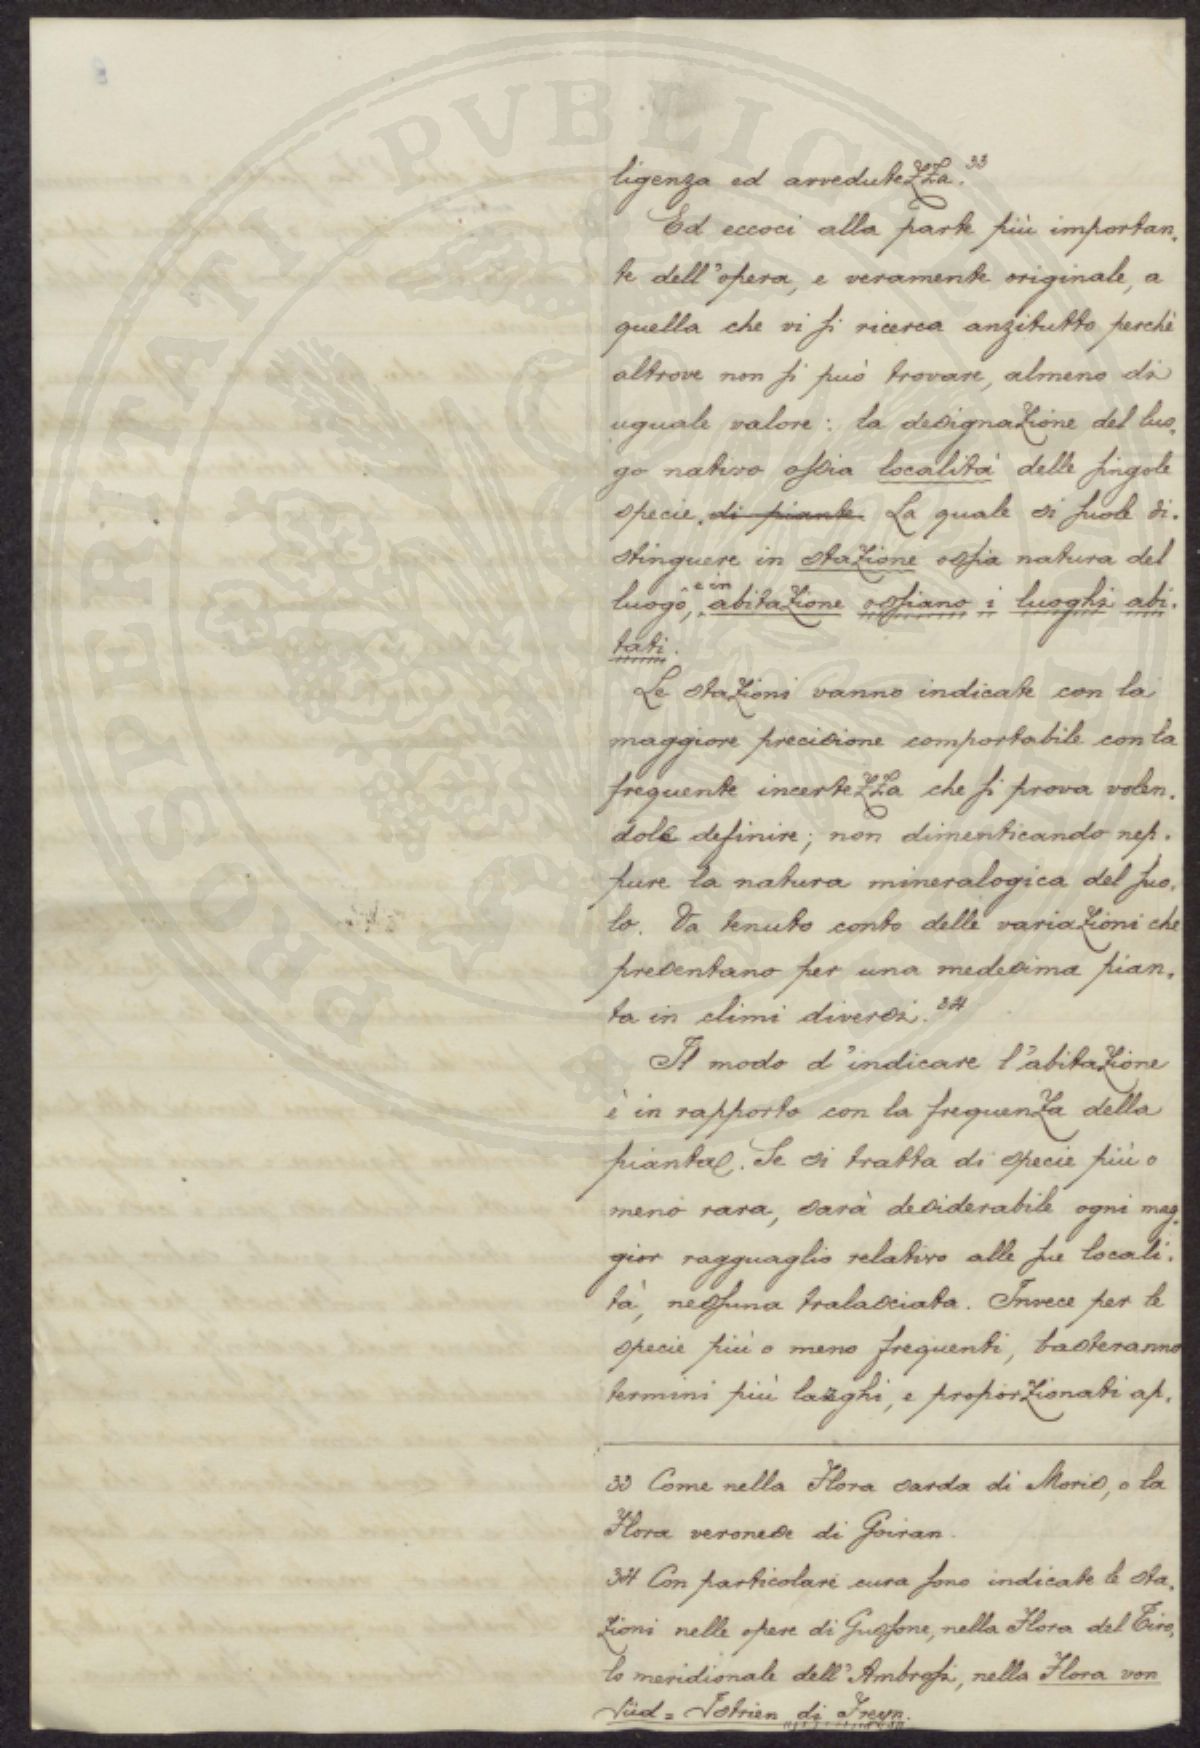 ligenza ed avvedutezza.33
Ed eccoci alla parte più importan-
te dell'opera, e veramente originale, a
quella che vi si ricerca anzitutto perchè
altrove non si può trovare, almeno di
uguale valore: la designazione del luo-
go nativo ossia località delle singole
specie. di piante. La quale si suole di-
stinguere in stazione ossia natura del
luogo, e in abitazione ossiano i luoghi abi-
tati.
Le stazioni vanno indicate con la
maggiore precisione comportabile con la
frequente incertezza che si prova volen-
dole definire; non dimenticando nep-
pure la natura mineralogica del suo-
lo. Va tenuto conto delle variazioni che
presentano per una medesima pian-
ta in climi diversi.34
Il modo d'indicare l'abitazione
è in rapporto con la frequenza della
pianta. Se si tratta di specie più o
meno rara, sarà desiderabile ogni mag-
gior ragguaglio relativo alle sue locali-
tà, nessuna tralasciata. Invece per le
specie più o meno frequenti, basteranno
termini più larghi, e proporzionati ap-
33 Come nella Flora sarda di Moris, o la
Flora veronese di Goiran.
34 Con particolare cura sono indicate le sta-
zioni nelle opere di Gussone, nella Flora del Tiro-
lo meridionale dell'Ambrosi, nella Flora von
Süd=Istrien di Freyn.
PROSPERITATI PVBLICAE